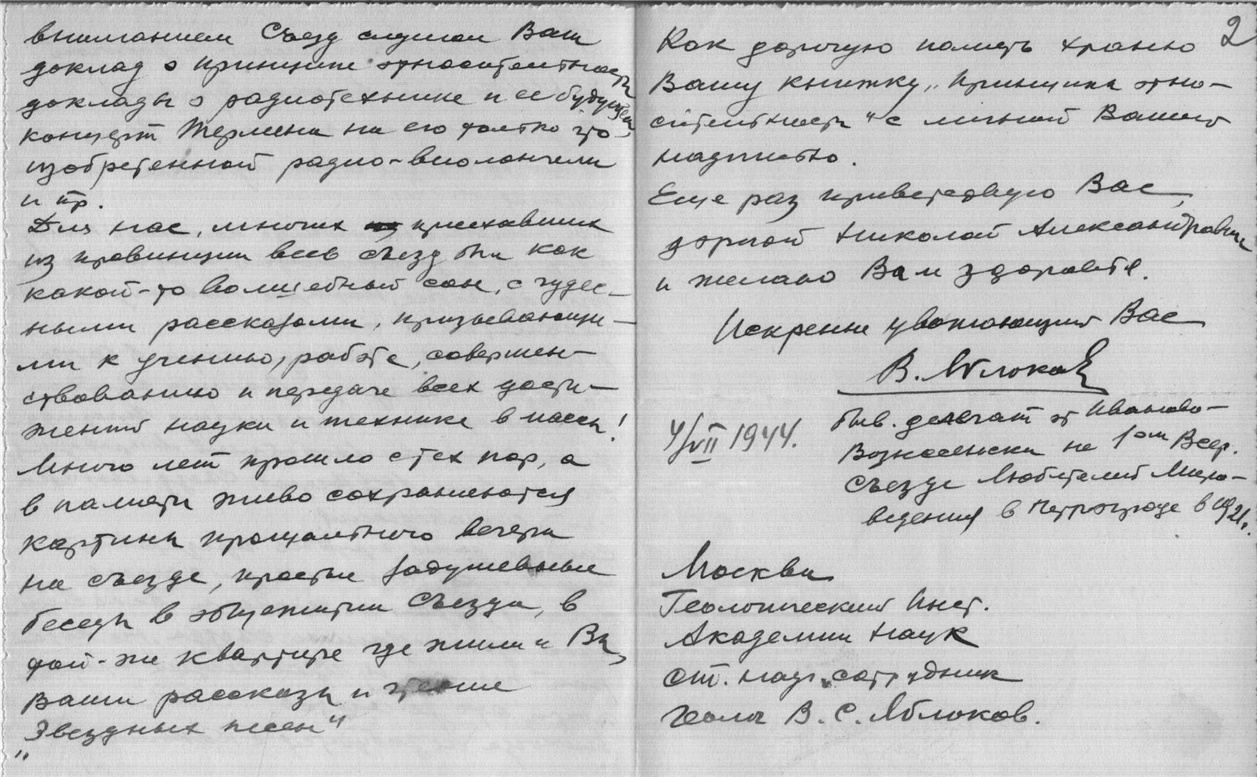 вниманием Съезд слушал Ваш
доклад о принципе относительности
доклады о радиотехнике и ее будущем,
концерт Термена на его только что
изобретенной радио-виолончели
и пр.
Для нас, многих приехавших
из провинции весь съезд был как
какой-то волшебный сон, с чудес-
ными рассказами, призывающи-
ми к учению, работе, совершен-
ствованию и передаче всех дости-
жений науки и технике в массы!
Много лет прошло с тех пор, а
в памяти живо сохраняются
картины прощального вечера
на съезде, простые задушевные
беседы в общежитии Съезда, в
той-же квартире где жили и Вы,
Ваши рассказы и чтение
"Звездных песен"
2
Как дорогую память храню
Вашу книжку „Принципа отно-
сительности" с личной Вашей
надписью.
Еще раз приветствую Вас,
дорогой Николай Александрович
и желаю Вам здоровья.
Искренне уважающий Вас
В. Яблоков
4/VII 1944.
быв. делегат от Иваново-
Вознесенска на 1ом Всер.
съезде Любителей Миро-
ведения в Петрограде в 1921.
Москва
Геологический Инст.
Академии Наук
ст. науч. сотрудник
геолог В. С. Яблоков.